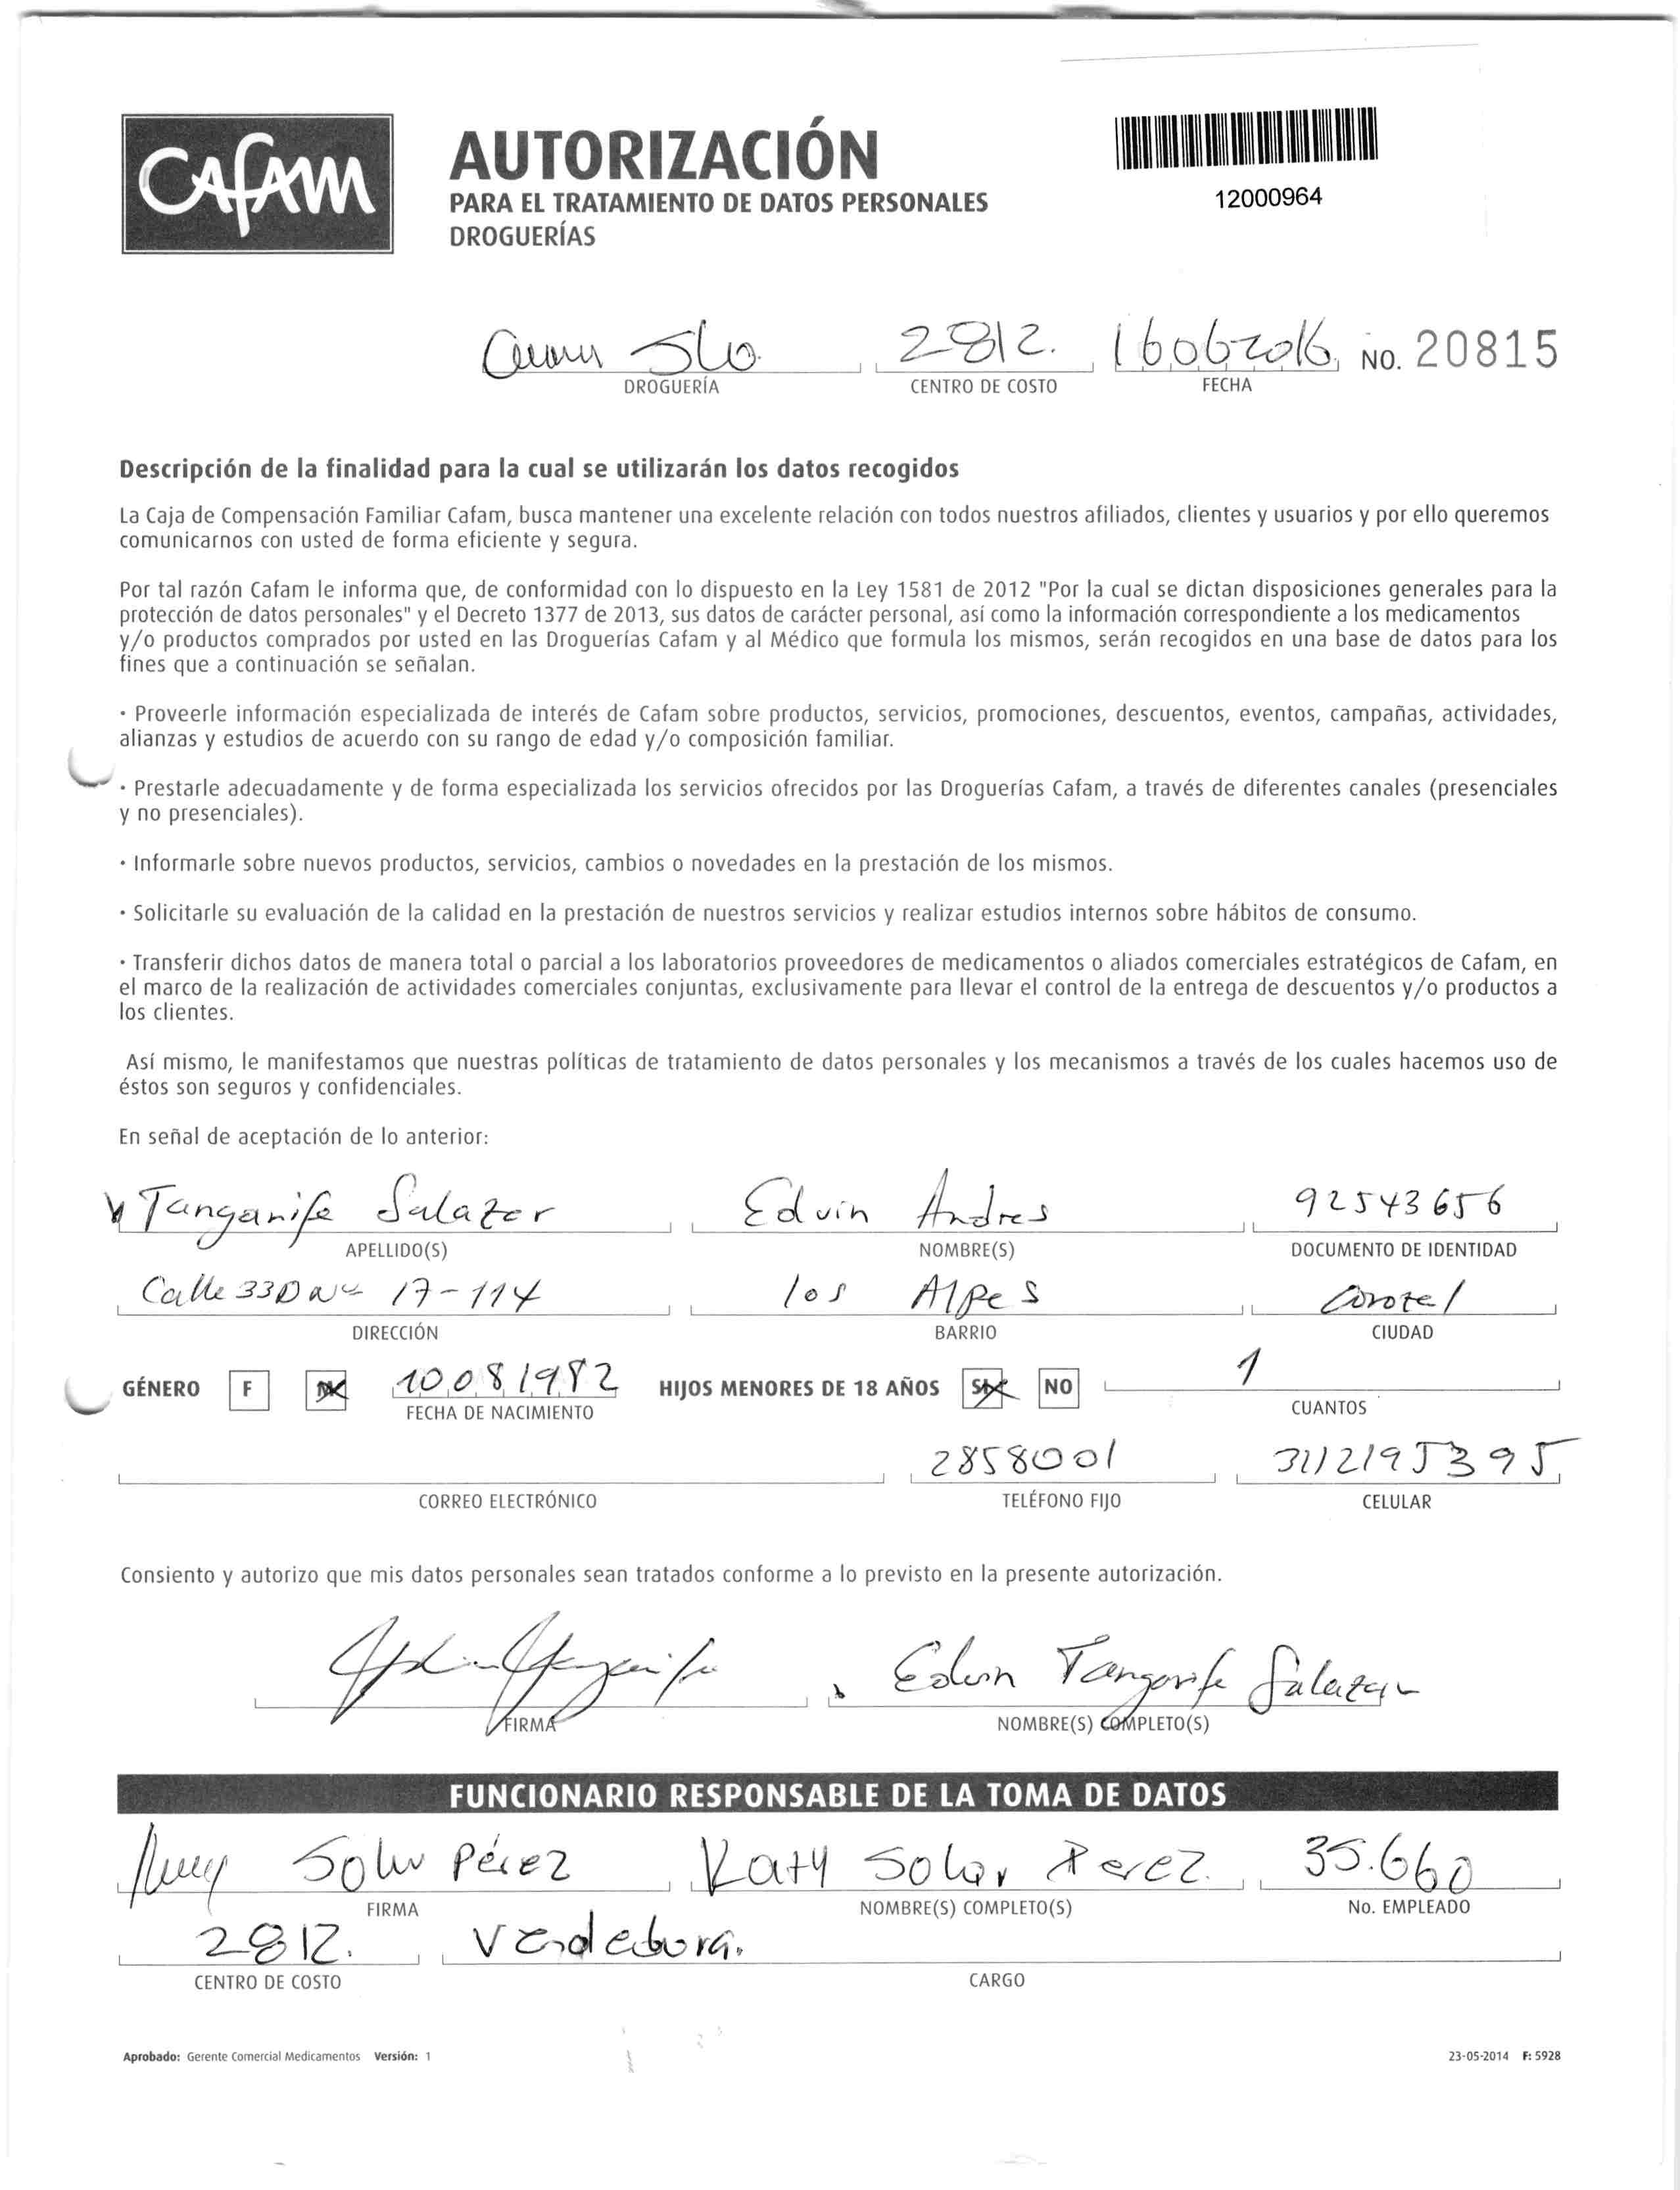 CAFAM
AUTORIZACIÓN
PARA EL TRATAMIENTO DE DATOS PERSONALES
DROGUERÍAS
12000964
2812. 16062016 NO. 20815
DROGUERÍA CENTRO DE COSTO FECHA
Descripción de la finalidad para la cual se utilizarán los datos recogidos
La Caja de Compensación Familiar Cafam, busca mantener una excelente relación con todos nuestros afiliados, clientes y usuarios y por ello queremos
comunicarnos con usted de forma eficiente y segura.
Por tal razón Cafam le informa que, de conformidad con lo dispuesto en la Ley 1581 de 2012 "Por la cual se dictan disposiciones generales para la
protección de datos personales" y el Decreto 1377 de 2013, sus datos de carácter personal, así como la información correspondiente a los medicamentos
y/o productos comprados por usted en las Droguerías Cafam y al Médico que formula los mismos, serán recogidos en una base de datos para los
fines que a continuación se señalan.
· Proveerle información especializada de interés de Cafam sobre productos, servicios, promociones, descuentos, eventos, campañas, actividades,
alianzas y estudios de acuerdo con su rango de edad y/o composición familiar.
· Prestarle adecuadamente y de forma especializada los servicios ofrecidos por las Droguerías Cafam, a través de diferentes canales (presenciales
y no presenciales).
· Informarle sobre nuevos productos, servicios, cambios o novedades en la prestación de los mismos.
· Solicitarle su evaluación de la calidad en la prestación de nuestros servicios y realizar estudios internos sobre hábitos de consumo.
· Transferir dichos datos de manera total o parcial a los laboratorios proveedores de medicamentos o aliados comerciales estratégicos de Cafam, en
el marco de la realización de actividades comerciales conjuntas, exclusivamente para llevar el control de la entrega de descuentos y/o productos a
los clientes.
Así mismo, le manifestamos que nuestras políticas de tratamiento de datos personales y los mecanismos a través de los cuales hacemos uso de
éstos son seguros y confidenciales.
En señal de aceptación de lo anterior:
Tanganife Salazar Edwin Andres 92543656
APELLIDO(S) NOMBRE(S) DOCUMENTO DE IDENTIDAD
Calle 33D No 17-114 los Alpes Corozal
DIRECCIÓN BARRIO CIUDAD
GÉNERO F M 10081982 HIJOS MENORES DE 18 AÑOS SI NO 1
FECHA DE NACIMIENTO CUANTOS
2858001 3112195395
CORREO ELECTRÓNICO TELÉFONO FIJO CELULAR
Consiento y autorizo que mis datos personales sean tratados conforme a lo previsto en la presente autorización.
Edwin Tanganife Salazar
FIRMA NOMBRE(S) COMPLETO(S)
FUNCIONARIO RESPONSABLE DE LA TOMA DE DATOS
Pérez Katy Solar Perez. 35.660
FIRMA NOMBRE(S) COMPLETO(S) No. EMPLEADO
2812. Vendedora.
CENTRO DE COSTO CARGO
Aprobado: Gerente Comercial Medicamentos Versión: 1 23-05-2014 F: 5928